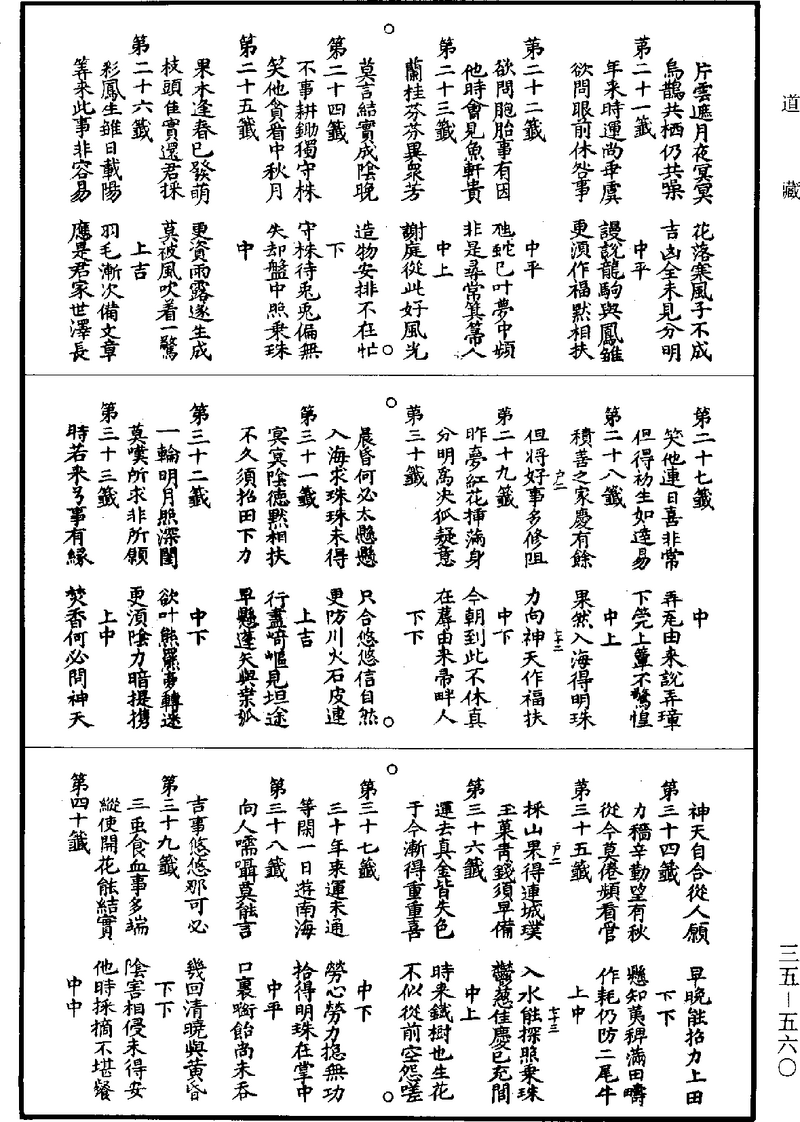 道藏
片雲遮月夜冥冥　花落寒風子不成
烏鵲共栖仍共噪　吉凶全未見分明
第二十一籤　中平
年來時運尚乖虞　謾說龍駒與鳳雛
欲問眼前休咎事　更須作福默相扶
第二十二籤　中平
欲問胞胎事有因　虺蛇已叶夢中頻
他時會見魚軒貴　非是尋常箕箒人
第二十三籤　中上
蘭桂芬芬異衆芳　謝庭從此好風光
莫言結實成陰晚　造物安排不在忙
第二十四籤　下
不事耕鋤獨守株　守株待兎兎偏無
笑他貪看中秋月　失却盤中照乘珠
第二十五籤　中
果木逢春已發萌　更資雨露遂生成
枝頭佳實還君採　莫被風吹着一驚
第二十六籤　上吉
彩鳳生雛日載陽　羽毛漸次備文章
筭來此事非容易　應是君家世澤長
第二十七籤　中
笑他連日喜非常　弄瓦由來說弄璋
但得初生如達易　下筦上簟不驚惶
第二十八籤　中上
積善之家慶有餘　果然入海得明珠
但將好事多修阻　力向神天作福扶
第二十九籤　中下
昨夢紅花揷滿身　今朝到此不休真
分明為決狐疑意　在蓐由來帶畔人
第三十籤　下下
晨昏何必太懸懸　只合悠悠信自然
入海求珠珠未得　更防川火石皮連
第三十一籤　上吉
冥冥陰德默相扶　行盡崎嶇見坦途
不久須招田下力　早懸蓬矢與桑弧
第三十二籤　中下
一輪明月照深閨　欲叶熊羆夢轉迷
莫嘆所求非所願　更須陰力暗提携
第三十三籤　上中
時若來兮事有緣　焚香何必問神天
神天自合從人願　早晚能招力上田
第三十四籤　下下
力穡辛勤望有秋　懸知荑稗滿田疇
從今莫倦頻看管　作耗仍防二尾牛
第三十五籤　上中
採山果得連城璞　入水能探照乘珠
玉菓青錢須早備　鬱葱佳慶已充閭
第三十六籤　中上
運去真金皆失色　時來鐵樹也生花
于今漸得重重喜　不似從前空怨嗟
第三十七籤　中下
三十年來運未通　勞心勞力揔無功
等閑一日遊南海　拾得明珠在掌中
第三十八籤　中平
向人嚅囁莫能言　口裏㗖飴尚未吞
吉事悠悠那可必　幾回清曉與黃昏
第三十九籤　下下
三蟲食血事多端　陰害相侵未得安
縱使開花能結實　他時採摘不堪餐
第四十籤　中中
三五—五六〇